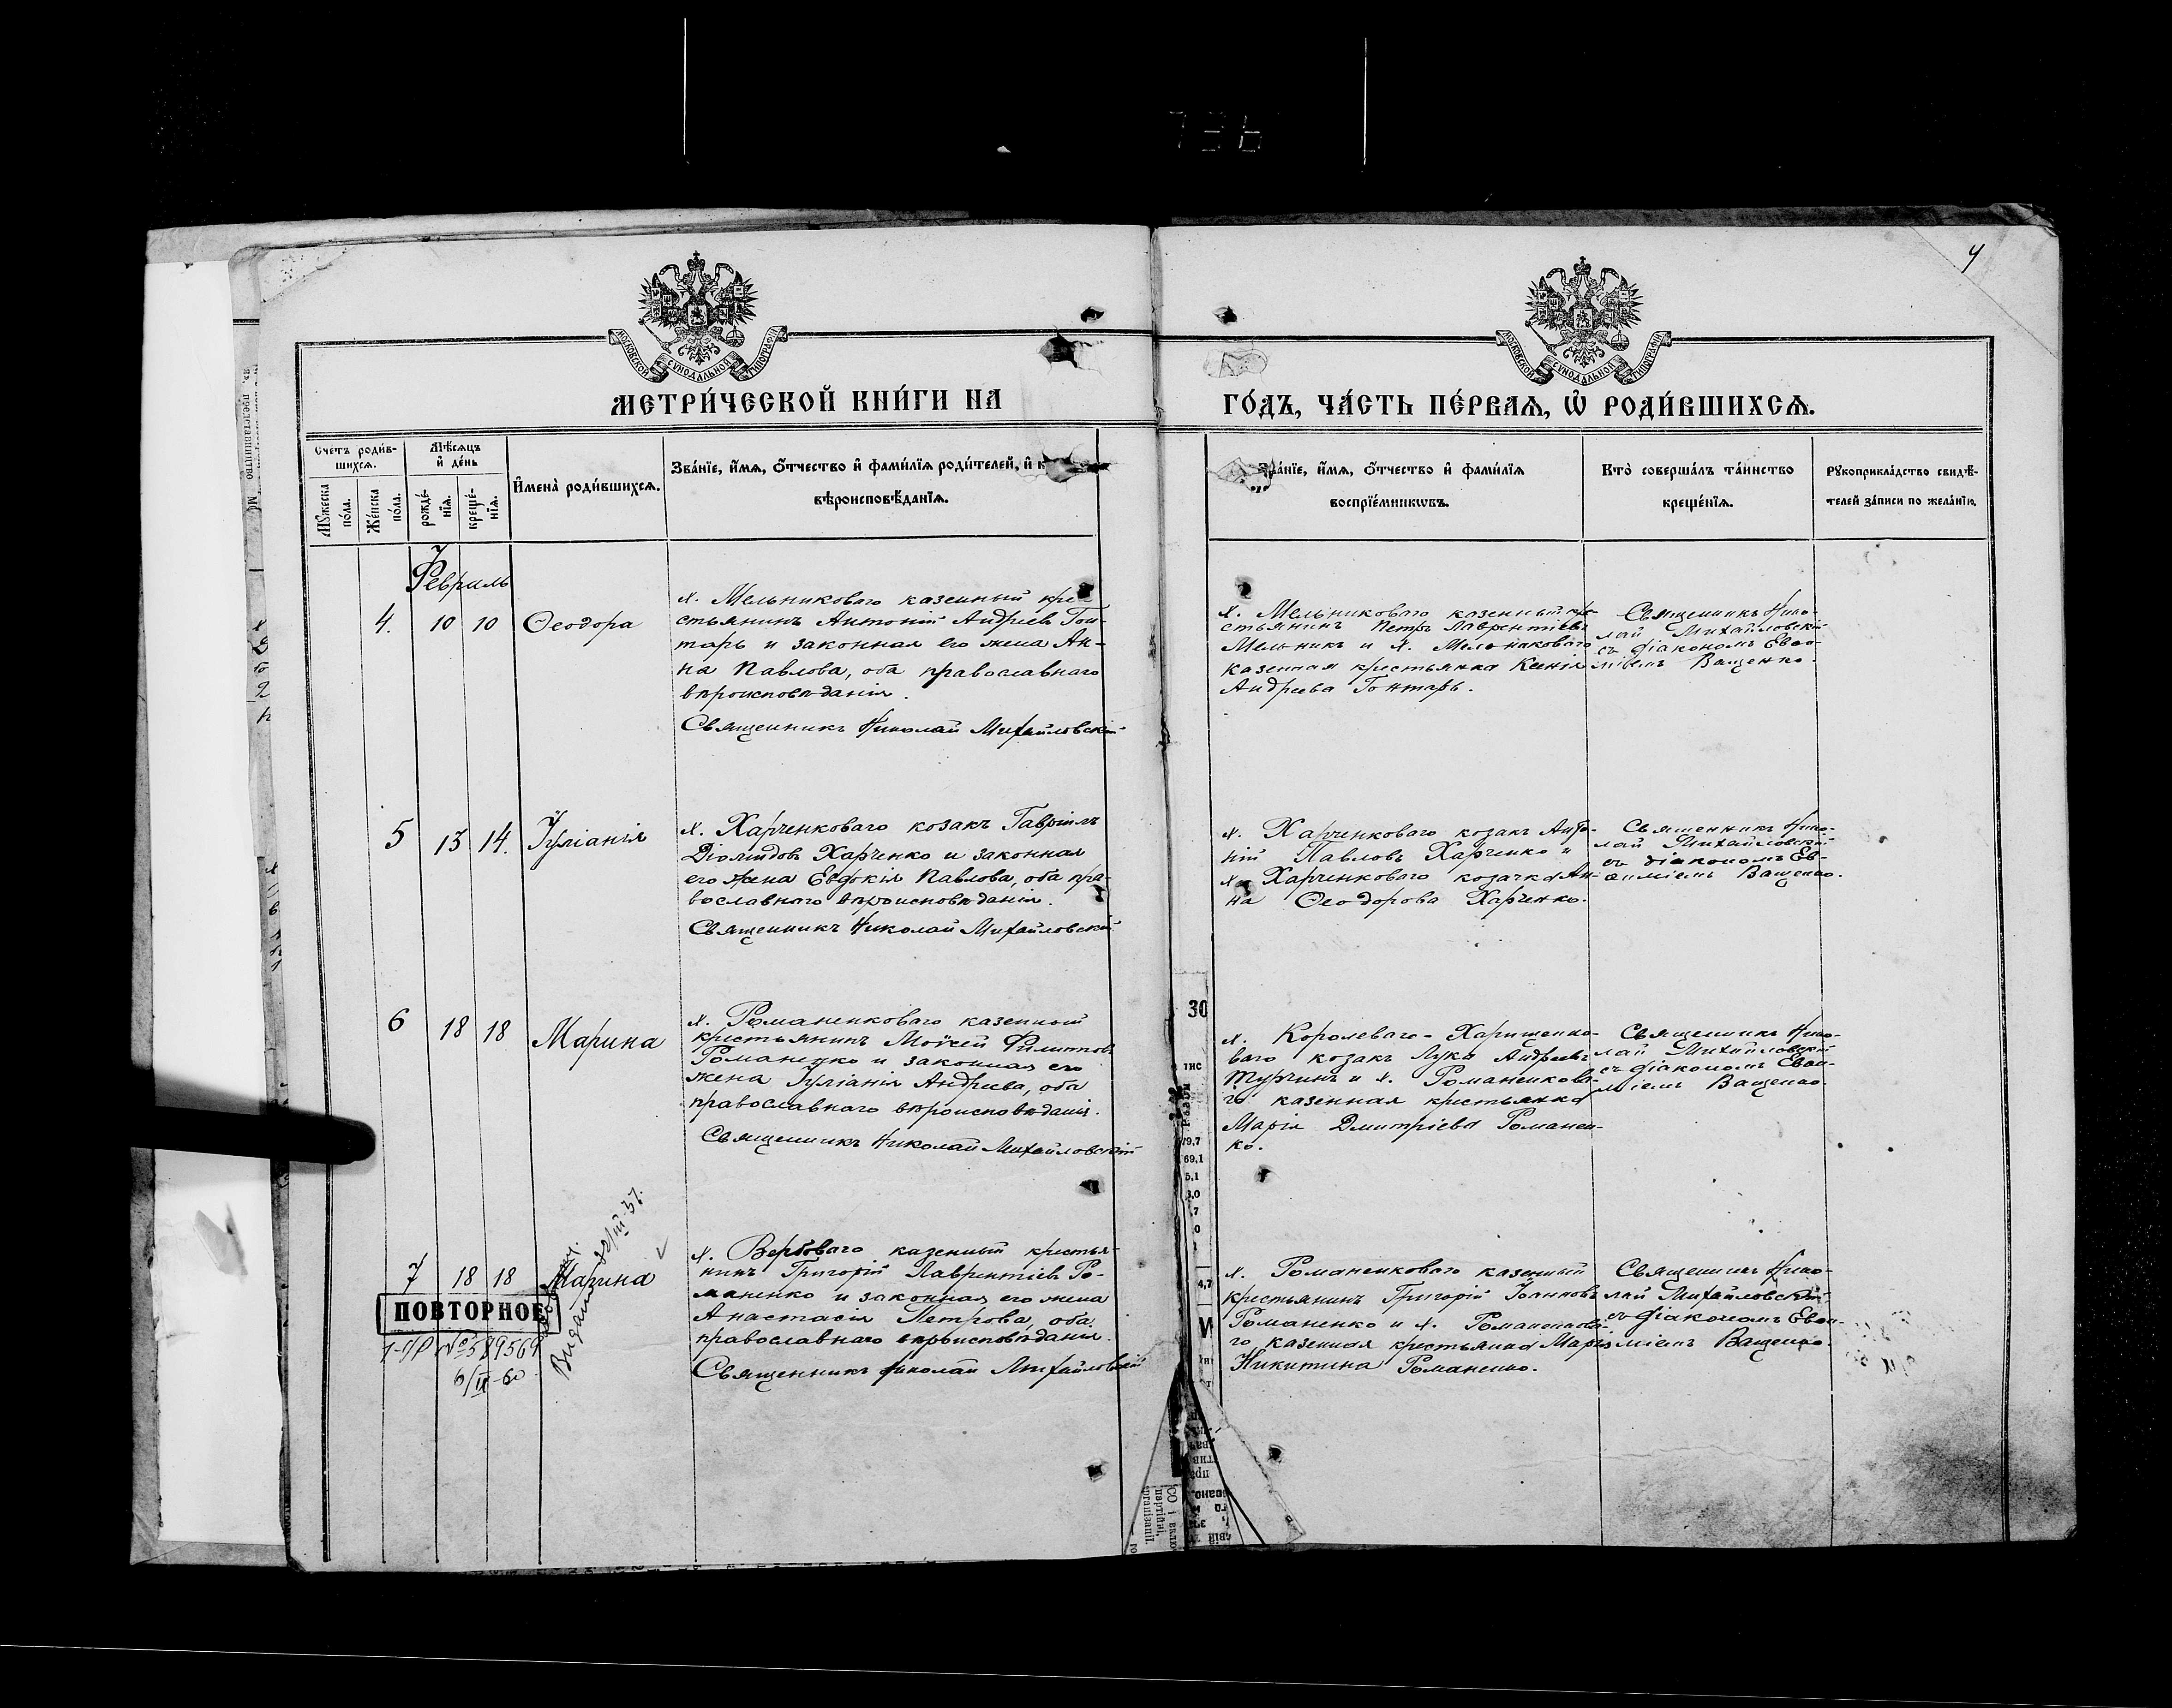 4
МОСКОВСКОЙ СУНОДАЛЬНОЙ ТИПОГРАФІИ
МОСКОВСКОЙ СУНОДАЛЬНОЙ ТИПОГРАФІИ
МЕТРИ́ЧЕСКОЙ КНИ́ГИ НА
ГО́ДЪ, ЧА́СТЬ ПЕ́РВАѦ, Ѿ РОДИ́ВШИХСѦ.
Счетъ роди́в-
шихсѧ.
Мѣ́сѧцъ
и҆ де́нь
Мꙋ́жеска
по́ла.
Же́нска
по́ла.
рожде́-
нїѧ.
креще́-
нїѧ.
И҆мена̀ роди́вшихсѧ.
Зва́нїе, и҆́мѧ, ѻ҆́тчество и҆ фами́лїѧ роди́телей, и҆
вѣроисповѣ́данїѧ.
Зва́нїе, и҆́мѧ, ѻ҆́тчество и҆ фами́лїѧ
воспрїе́мникѡвъ.
Кто̀ соверша́лъ та́инство
креще́нїѧ.
Рꙋкоприкла́дство свидѣ́-
телей за́писи по жела́нїю.
Февраль
4. 10 10 Ѳеодора
х. Мельниковаго казенный кре-
стьянинъ Антоній Андреевъ Гон-
тарь и законная его жена Ан-
на Павлова, оба православнаго
вѣроисповѣданія.
Священникъ Николай Михайловскій
х. Мельниковаго казенный кре-
стьянинъ Петръ Лаврентіевъ
Мельникъ и х. Мельниковаго
казенная крестьянка Ксенія
Андреева Гонтарь.
Священникъ Нико-
лай Михайловскій
съ діакономъ Евѳи-
міемъ Ващенко.
5 13 14. Іуліанія
х. Харченковаго козакъ Гавріилъ
Діомидовъ Харченко и законная
его жена Евдокія Павлова, оба пра-
вославнаго вѣроисповѣданія.
Священникъ Николай Михайловскій
х. Харченковаго козакъ Анто-
ній Павловъ Харченко и
х. Харченковаго козачка Ан-
на Ѳеодорова Харченко.
Священникъ Нико-
лай Михайловскій
съ діакономъ Ев-
ѳиміемъ Ващенко.
6 18 18 Марина
х. Романенковаго казенный
крестьянинъ Моѵсей Филиповъ
Романенко и законная его
жена Іуліанія Андреева, оба
православнаго вѣроисповѣданія.
Священникъ Николай Михайловскій
х. Королеваго-Харишенко-
ваго козакъ Лука Андреевъ
Турчинъ и х. Романенкова-
го казенная крестьянка
Марія Дмитріева Романен-
ко.
Священникъ Нико-
лай Михайловскій
съ діакономъ Евѳи-
міемъ Ващенко.
7 18 18 Марина
х. Вербоваго казенный крестья-
нинъ Григорій Лаврентіевъ Ро-
маненко и законная его жена
Анастасія Петрова, оба
православнаго вѣроисповѣданія.
Священникъ Николай Михайловскій
х. Романенковаго казенный
крестьянинъ Григорій Іоанновъ
Романенко и х. Романенкова-
го казенная крестьянка Марія
Никитина Романенко.
Священникъ Нико-
лай Михайловскій
съ діакономъ Евѳи-
міемъ Ващенко.
ПОВТОРНОЕ
№ 589569
6/II-60
30
79,7
69,1
5,1